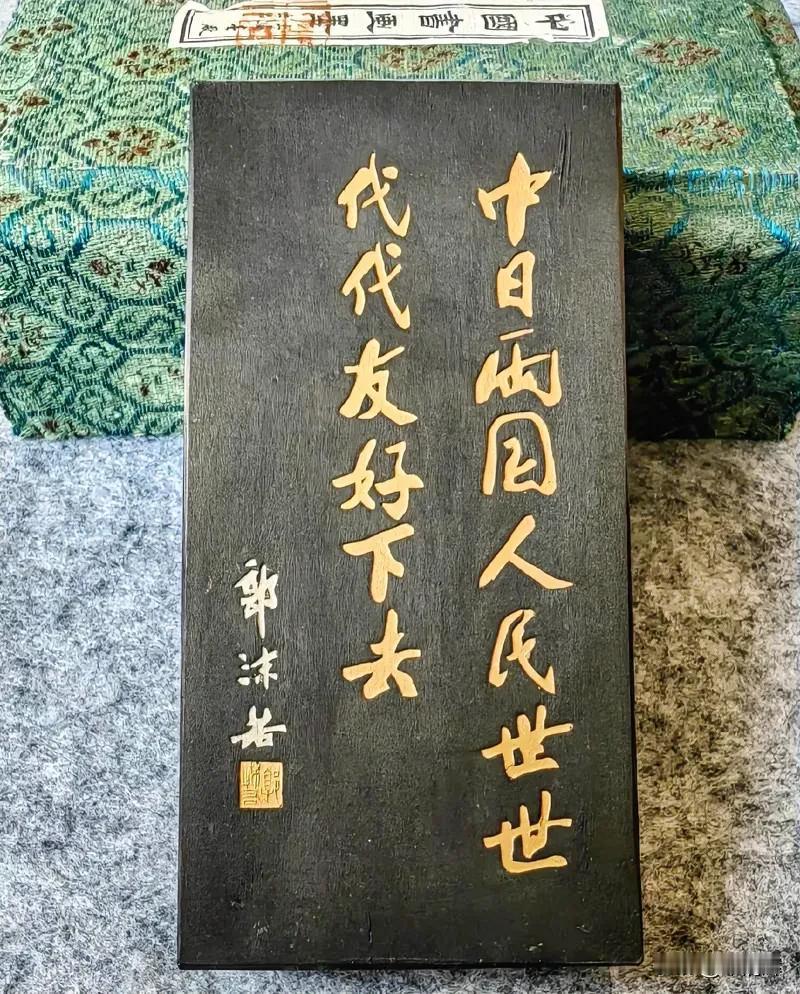 中國書畫墨
中日两国人民世世
代代友好下去
郭沫若